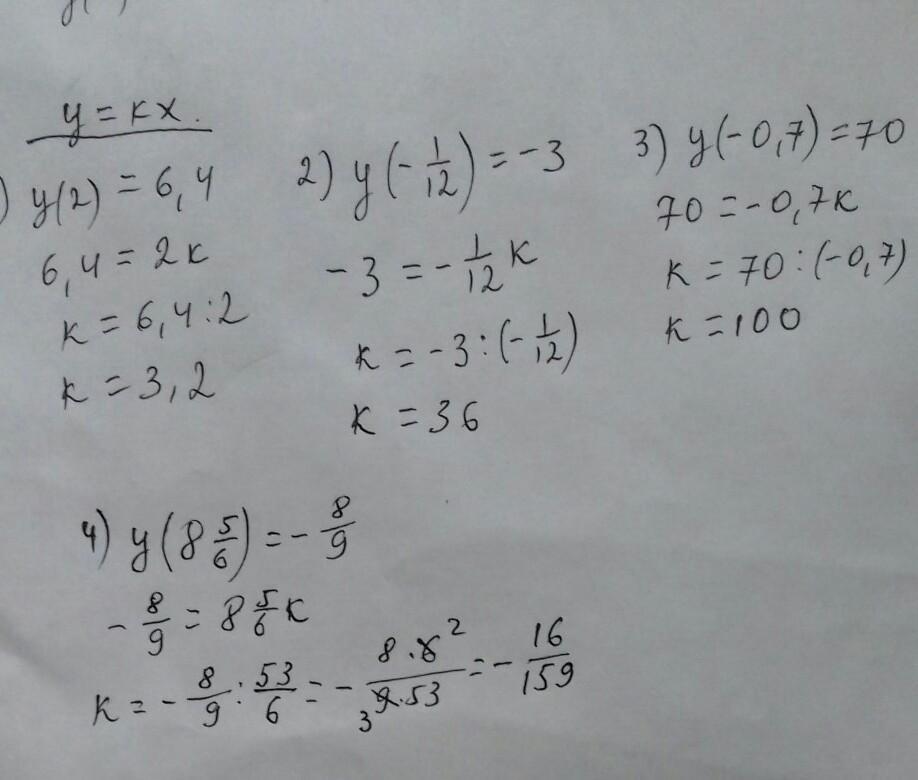 y = kx.
1) y(2) = 6,4
6,4 = 2k
k = 6,4 : 2
k = 3,2
2) y(-1/12) = -3
-3 = -1/12 k
k = -3 : (-1/12)
k = 36
3) y(-0,7) = 70
70 = -0,7k
k = 70 : (-0,7)
k = 100
4) y(8 5/6) = -8/9
-8/9 = 8 5/6 k
k = -8/9 : 53/6 = -(8·6 2)/(3 9·53) = -16/159